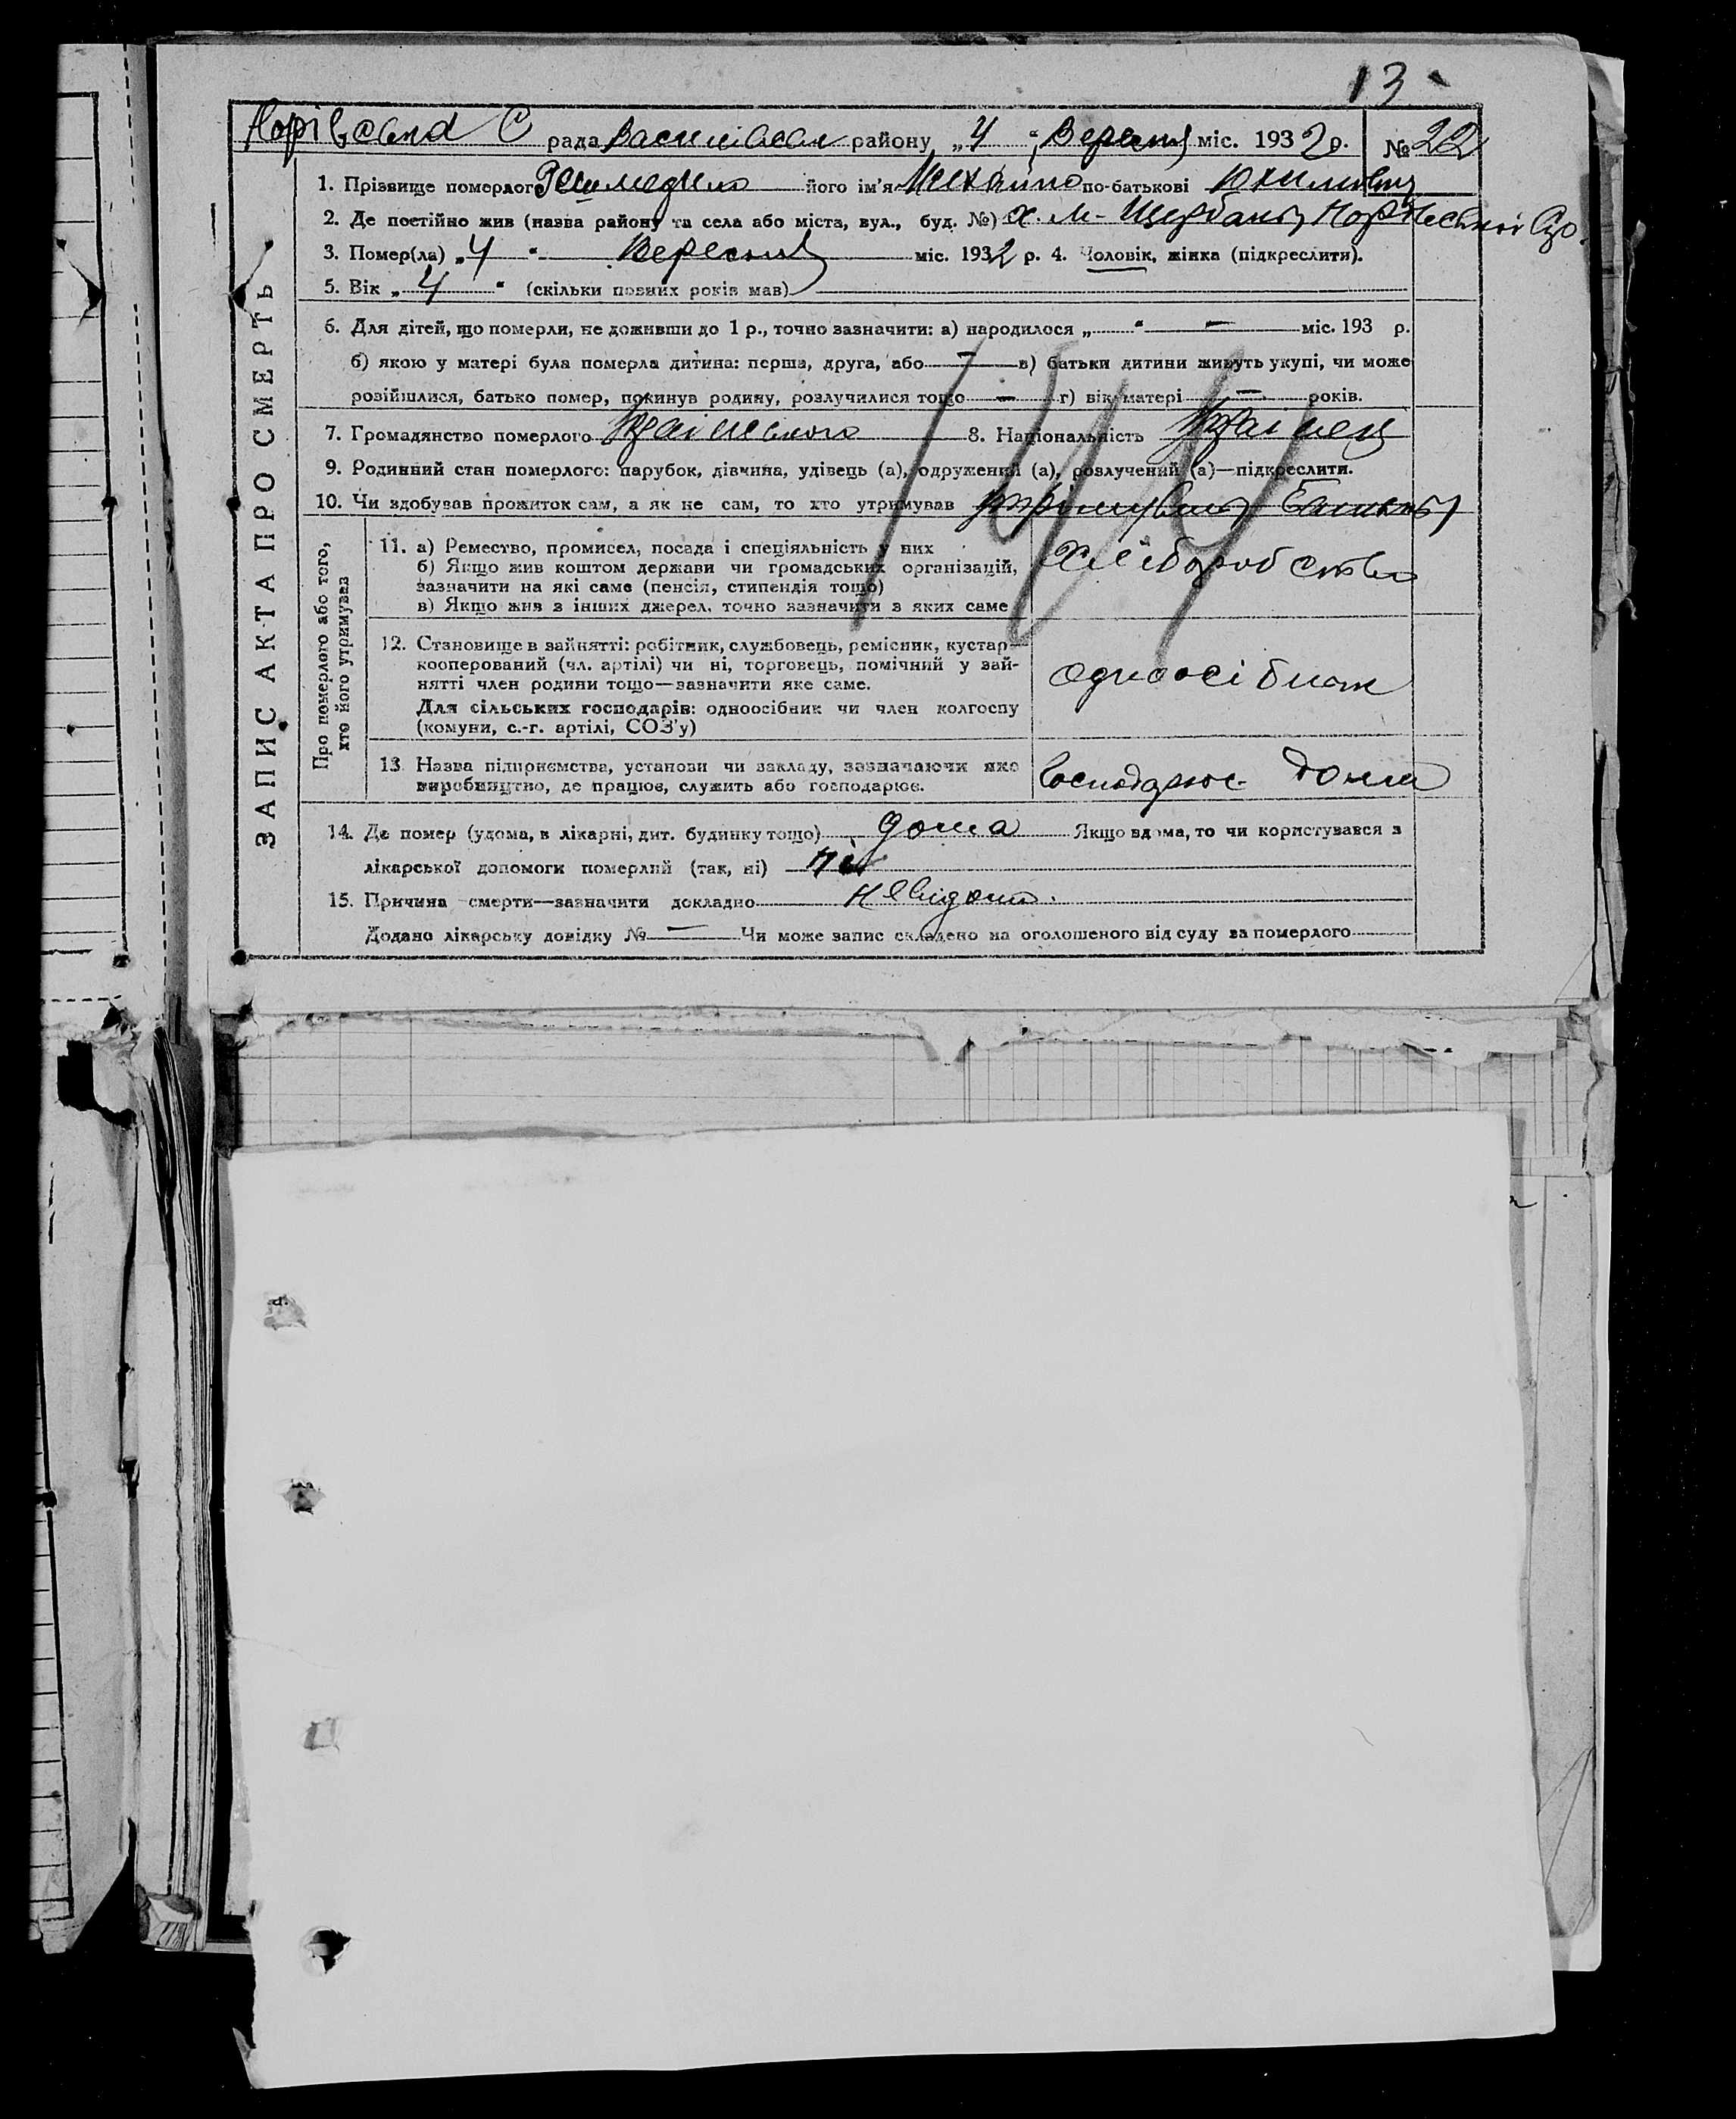 13
рада Василівськ району „4“ Вересня міс. 1932 р. № 22
1. Прізвище померлого його ім'я Михайло по-батькові Юхимович
2. Де постійно жив (назва району та села або міста, вул., буд. №) х. М-Щербани
3. Помер(ла) „4“ Вересня міс. 1932 р. 4. Чоловік, жінка (підкреслити).
5. Вік „4“ (скільки повних років мав)
6. Для дітей, що померли, не доживши до 1 р., точно зазначити: а) народилося „ “ — міс. 193 р.
б) якою у матері була померла дитина: перша, друга, або — в) батьки дитини живуть укупі, чи може
розійшлися, батько помер, покинув родину, розлучилися тощо — г) вік матері — років.
7. Громадянство померлого Українського 8. Національність Українец
9. Родинний стан померлого: парубок, дівчина, удівець (а), одружений (а), розлучений (а)—підкреслити.
10. Чи здобував прожиток сам, а як не сам, то хто утримував утримували батьки
ЗАПИС АКТА ПРО СМЕРТЬ
Про померлого або того,
хто його утримував
11. а) Ремество, промисел, посада і спеціяльність у них
б) Якщо жив коштом держави чи громадських організацій,
зазначити на які саме (пенсія, стипендія тощо)
в) Якщо жив з інших джерел, точно зазначити з яких саме
Хліборобство
12. Становище в занятті: робітник, службовець, ремісник, кустар—
кооперований (чл. артілі) чи ні, торговець, помічний у зай-
нятті член родини тощо—зазначити яке саме.
Для сільських господарів: одноосібник чи член колгоспу
(комуни, с.-г. артілі, СОЗ'у)
одноосібник
13. Назва підприємства, установи чи закладу, зазначаючи яке
виробництво, де працює, служить або господарює.
Господарює дома
14. Де помер (удома, в лікарні, дит. будинку тощо) дома Якщо вдома, то чи користувався з
лікарської допомоги померлий (так, ні) ні
15. Причина смерти—зазначити докладно невідома.
Додано лікарську довідку № — Чи може запис складено на оголошеного від суду за померлого